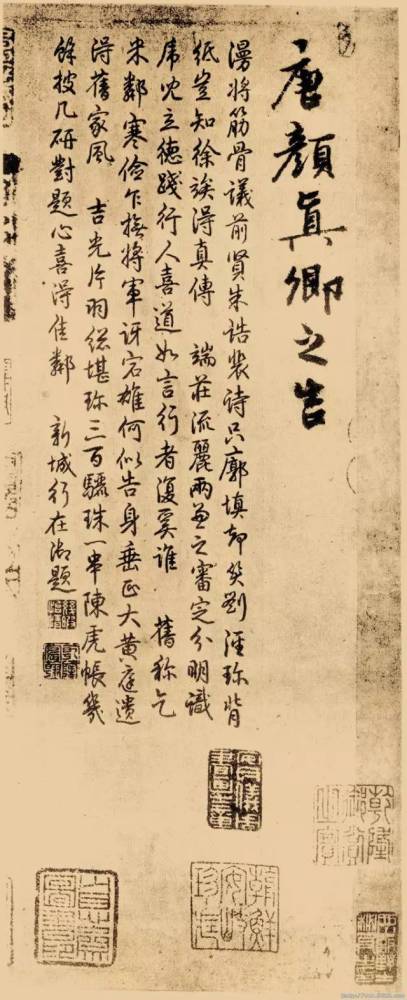 唐顏真卿之告
漫將筋骨議前賢朱誥裴詩只廓填却笑劉涇珍背
紙豈知徐得真傳 端莊流麗兩兼之審定分明識
虎兒立德踐行人喜道如言行者復奚誰 舊稱乞
米鄰寒儉乍撫將軍訝宕雄何似告身垂正大黃庭遺
得舊家風 吉光片羽總堪珍三百驪珠一串陳虎帳幾
餘披几研對題心喜得佳鄰 新城行在御題
朝鮮安岐珍藏